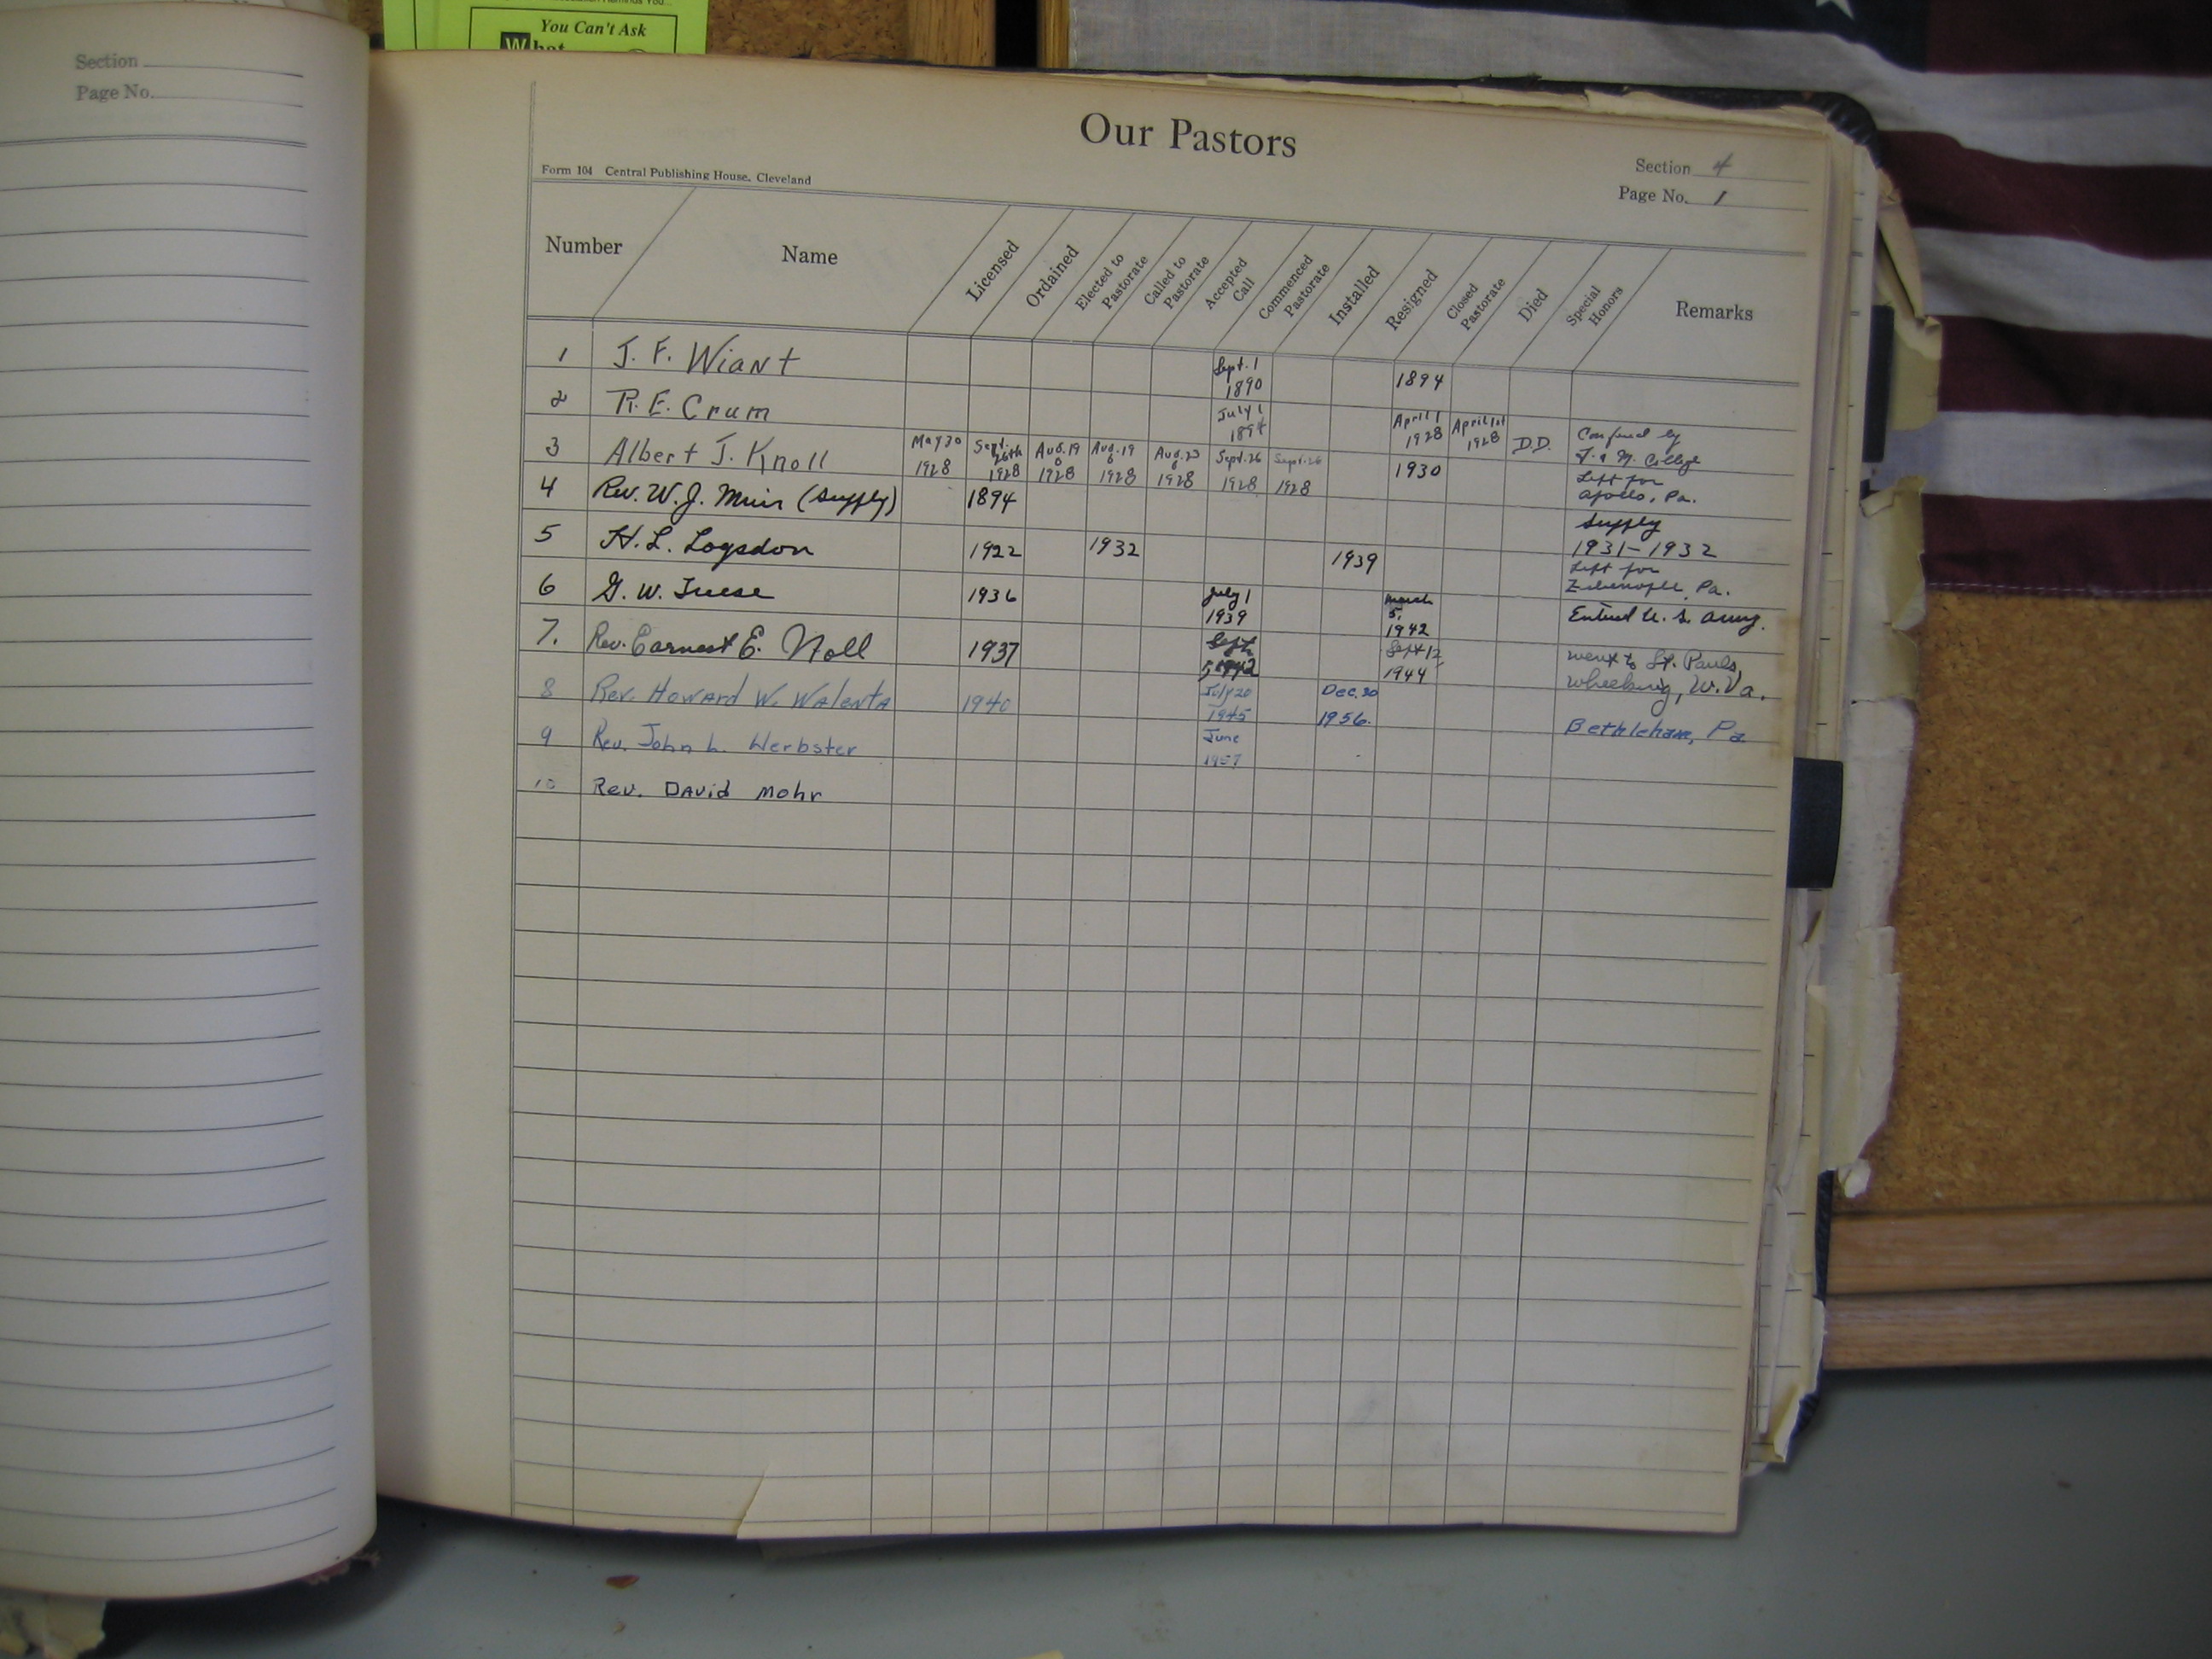 You Can't Ask
What
Section
Page No.
Our Pastors
Form 104 Central Publishing House, Cleveland
Section 4
Page No. 1
Number Name Licensed Ordained Elected to Pastorate Called to Pastorate Accepted Call Commenced Pastorate Installed Resigned Closed Pastorate Died Special Honors Remarks
1 J. F. Wiant Sept. 1 1890 1894
2 R. E. Crum July 1 1894 April 1 1928 April 1st 1928 D.D. Conferred by F. & M. College
3 Albert J. Knoll May 30 1928 Sept. 26th 1928 Aug. 19 1928 Aug. 19 1928 Aug. 23 1928 Sept. 26 1928 Sept. 26 1928 1930 Left for Apollo, Pa.
4 Rev. W. J. Muir (Supply) 1894 Supply 1931-1932
5 H. L. Logsdon 1922 1932 1939 Left for Zelienople, Pa.
6 G. W. 1936 July 1 1939 March 5, 1942 Entered U. S. Army.
7. Rev. Earnest E. Noll 1937 Sept 5 1942 Sept 12, 1944 went to St. Pauls, Wheeling, W. Va.
8 Rev. Howard W. Walenta 1940 July 20 1945 Dec. 30 1956. Bethlehem, Pa
9 Rev. John L. Herbster June 1957
10 Rev. David Mohr